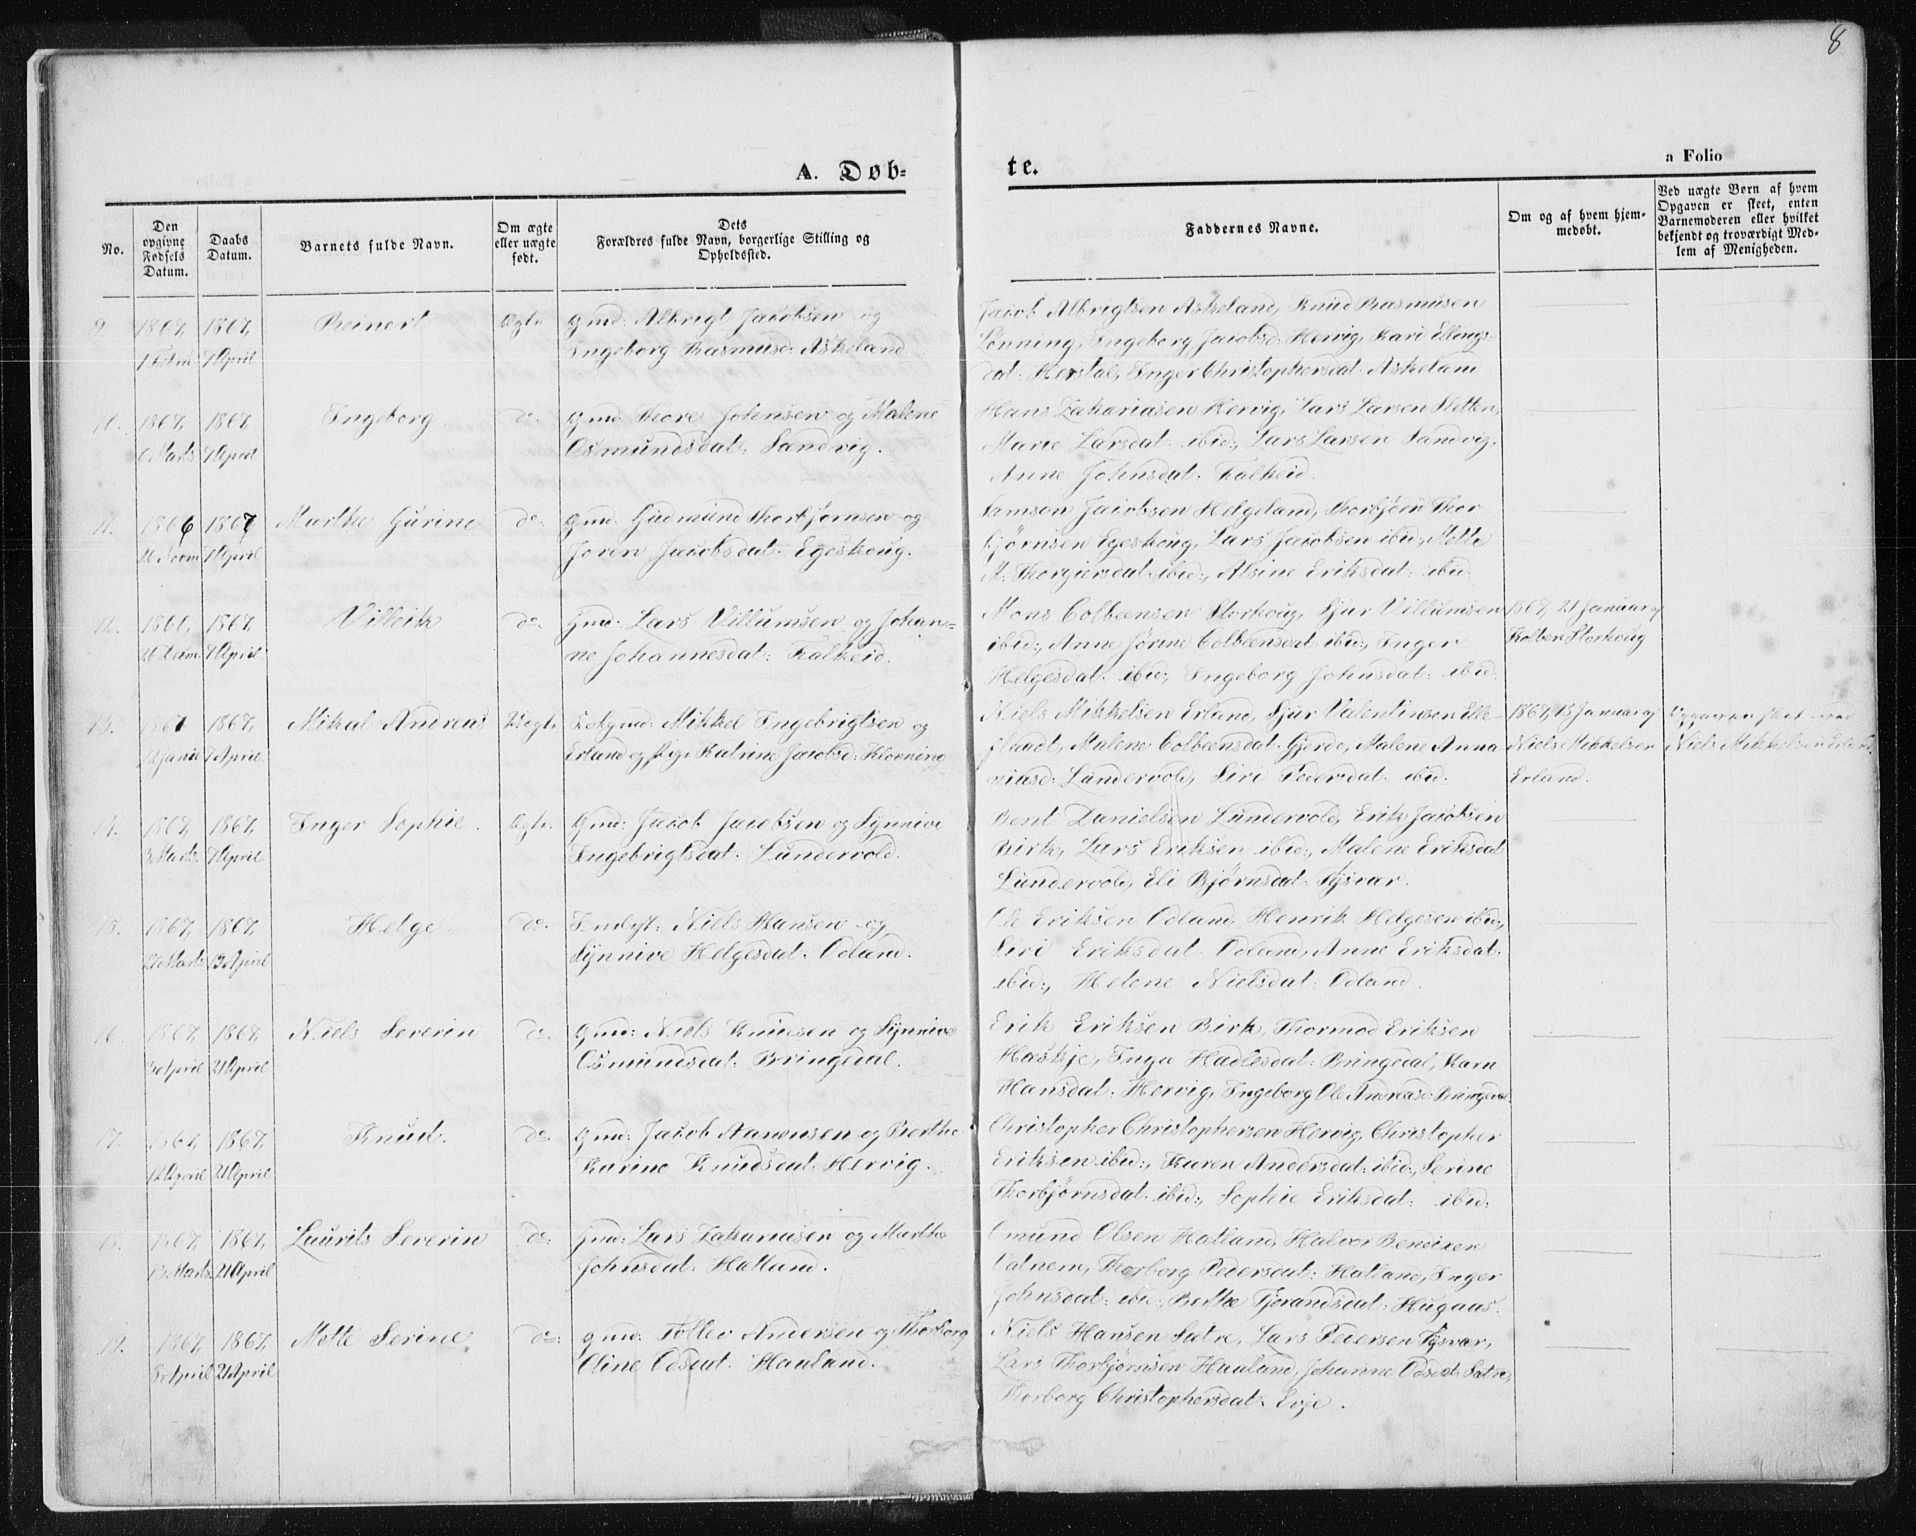 8
A. Døb-
te.
a Folio
No.
Den opgivne Fødsels Datum.
Daabs Datum.
Barnets fulde Navn.
Om ægte eller uægte født.
Dets Forældres fulde Navn, borgerlige Stilling og Opholdssted.
Faddernes Navne.
Om og af hvem hjemmedøbt.
Ved uægte Børn af hvem Opgaven er skeet, enten Barnemoderen eller hvilket bekjendt og troværdigt Medlem af Menigheden.
9. 1867, 1867, Reinert Ægte Gmd: Albrigt Jacobsen og
7 April Ingeborg Rasmusd: Askeland
Jacob Albrigtsen Askeland, Knud Rasmusen
Lønning, Ingeborg Jacobsd: Hervig, Kari Ellings-
dat: Herstal, Inger Christophersdat: Askeland
10. 1867, 1867, Ingeborg do. Gmd: Thore Johnsen og Malene
6 Marts 7 April Osmundsdat: Sandvig.
Hans Zakariasen Hervig, Lars Larsen Sletten,
Marie Larsdat: ibid:, Lars Larsen Sandvig,
Anne Johnsdat: Falkeid.
11. 1866 1867 Marthe Gurine do. Gmd: Gudmund Thorbjørnsen og
7 April Joren Jacobsdat: Egeskoug.
Samson Jacobsen Helgeland, Thorbjørn Thor
bjørnsen Egeskoug, Lars Jacobsen ibid:, Mette
M: Thorgiersdat: ibid:, Alsine Eriksdat: ibid:
12. 1867, Villeik do. Gmd: Lars Villumsen og Johan-
7 April ne Johannesdat: Falkeid.
Mons Colbeensen Storkoug, Sjur Villumsen
ibid:, Anne Jorine Colbeensdat: ibid:, Inger
Helgesdat: ibid:, Ingeborg Johnsdat: ibid:
1867, 21 Januar af
Kolben Storkoug
13. 1867 1867, Mikal Andreas Uægte Mikkel Ingebrigtsen og
7 April Erland og Pige Katrine Jacobsd:
Niels Mikkelsen Erland, Sjur Valentinsen Elle-
flaadt, Malene Colbeensdat: Gjerde, Malene Anna
niasd: Lundervold, Siri Pedersdat: ibid.
1867, 15 Januar af
Niels Mikkelsen
Erland.
Opgaven skeet ved
Niels Mikkelsen Erland.
14. 1867, 1867, Inger Sophie. Ægte. Gmd: Jacob Jacobsen og Synnive
Marts 7 April Ingebrigtsdat: Lundervold.
Bent Danielsen Lundervold, Erik Jacobsen
Birk, Lars Eriksen ibid:, Malene Eriksdat:
Lundervold, Eli Bjørnsdat: Tysvær.
15. 1867, 1867, Helge do. Niels Hansen og
Marts 13 April Synnive Helgesdat: Odland.
Ole Eriksen Odland, Henrik Helgesen ibid:,
Siri Eriksdat: Odland, Anne Eriksdat:
ibid:, Helene Nielsdat: Odland.
16. 1867, 1867, Niels Severin do. Gmd: Niels Knudsen og Synnive
April 21 April Osmundsdat: Bringedal.
Erik Eriksen Birk, Thormod Eriksen
Haskje, Inga Hadlesdat: Bringedal, Karn
Hansdat: Hervig, Ingeborg Ole Andreasd: Bringedal
17. 1867, 1867, Knud. do. Gmd: Jacob Aanensen og Berthe
12 April 21 April Karine Knudsdat: Hervig.
Christopher Christophersen Hervig, Christopher
Eriksen ibid:, Karen Andersdat: ibid:, Serine
Thorbjørnsdat: ibid:, Sophie Eriksdat: ibid:
18. 1867, 1867, Laurits Severin do: Gmd: Lars Zakariasen og Marthe
13 Marts 21 April Johnsdat: Hatland.
Omund Olsen Hatland, Halvor Bendixen
Vatnem, Thorborg Pedersdat: Hatland, Inger
Johnsdat: ibid:, Berthe Tjerandsdat: Hugaas.
19. 1867, 1867, Mette Serine do: Gmd: Tollev Andersen og Thorborg
April 21 April Oline Odsdat: Hauland.
Niels Hansen Sætre, Lars Pedersen Tysvær,
Lars Thorbjørnsen Hauland, Johanne Odsdat: Sætre,
Thorborg Christophersdat: Evje.